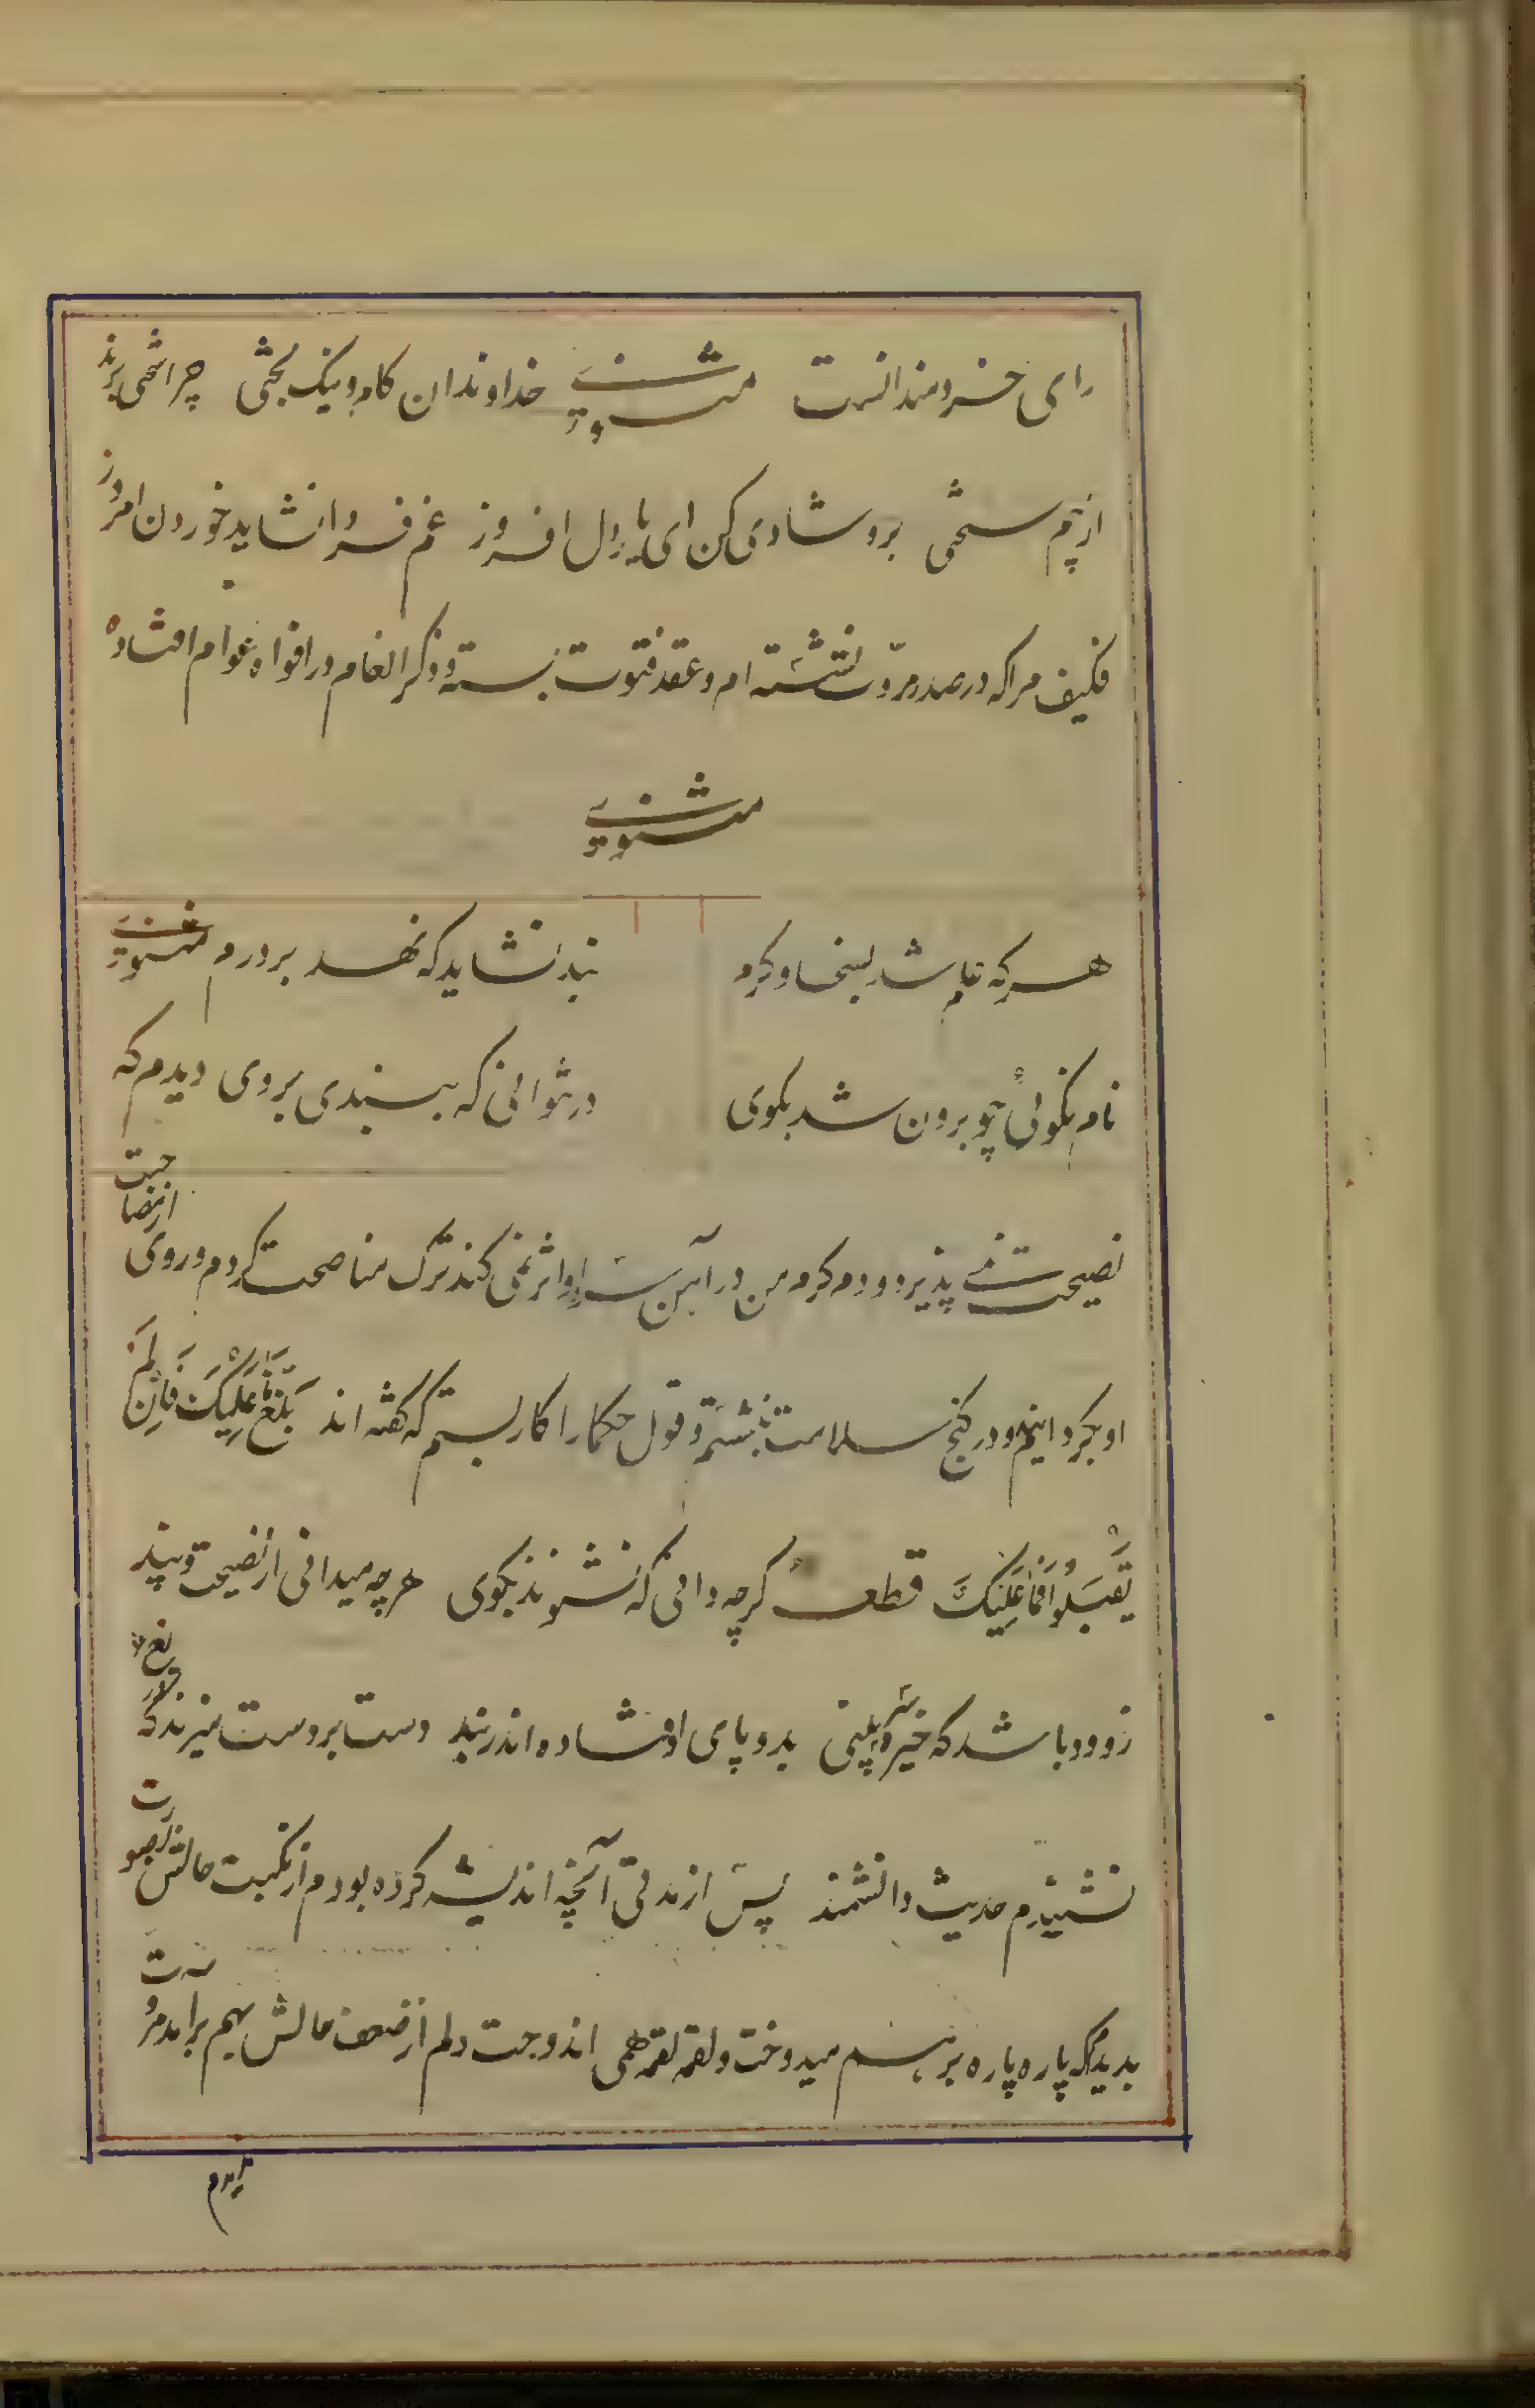 رای خردمندانست مثنوی خداوندان کام و نیک بختی چرا سختی برند
از بیم سختی برو شادی کن ای یار دل افروز غم فردا نشاید خوردن امروز
فکیف مرا که در صدر مروّت نشسته ام و عقد فتوت بسته و ذکر انعام در افواه عوام افتاده
مثنوی
هرکه علم شد بسخا و کرم بند نشاید که نهد بر درم مثنوی
نام نکوئی چو برون شد بکوی در نتوانی که ببندی بروی دیدم که
نصیحت نمی پذیرد و دم گرم من در آهن سرد او اثر نمی کند ترک مناصحت کردم و روی از مصاحبت
او بگردانیدم و در کنج سلامت بنشستم و قول حکما را کار بستم که گفته اند بَلِّغْ مَا عَلَیْکَ فَاِنْ لَمْ
یَقْبَلُوْا فَمَا عَلَیْکَ قطعه گرچه دانی که نشنوند بگوی هرچه میدانی از نصیحت و پند
زود باشد که خیره سر بینی بدو پای اوفتاده اندر بند دست بر دست میزند که دریغ
نشنیدم حدیث دانشمند پس از مدتی آنچه اندیشه کرده بودم از نکبت حالش بصورت
بدیدم که پاره پاره بر هم میدوخت و لقمه لقمه همی اندوخت دلم از ضعف حالش بهم برآمد مروت
ندیدم